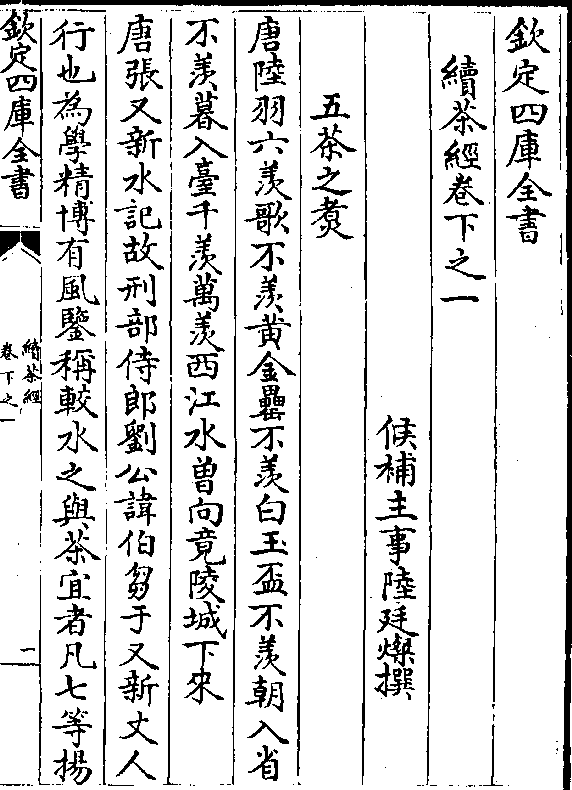 欽定四庫全書
續茶經卷下之一
候補主事陸廷燦撰
五茶之煑
唐陸羽六羨歌不羨黄金罍不羨白玉盃不羨朝入省
不羨暮入臺千羨萬羨西江水曽向竟陵城下來
唐張又新水記故刑部侍郎劉公諱伯芻于又新丈人
行也為學精博有風鑒稱較水之與茶宜者凡七等揚
欽定四庫全書
續茶經
卷下之一
二